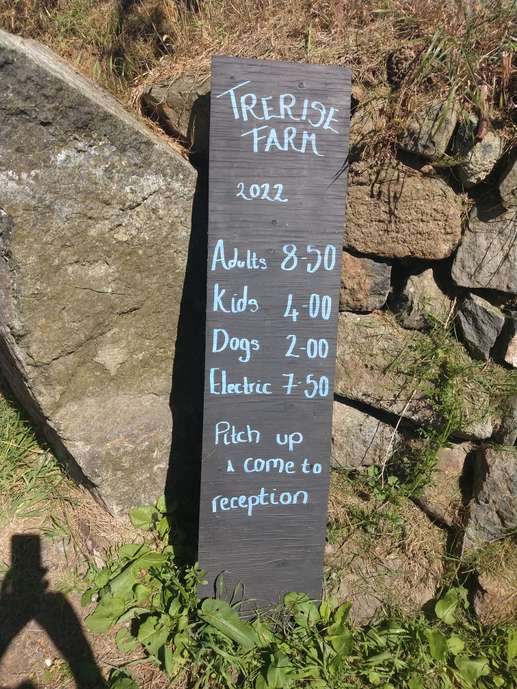 TRERISE
FARM
2022
Adults 8-50
Kids 4-00
Dogs 2-00
Electric 7-50
Pitch up
& come to
reception